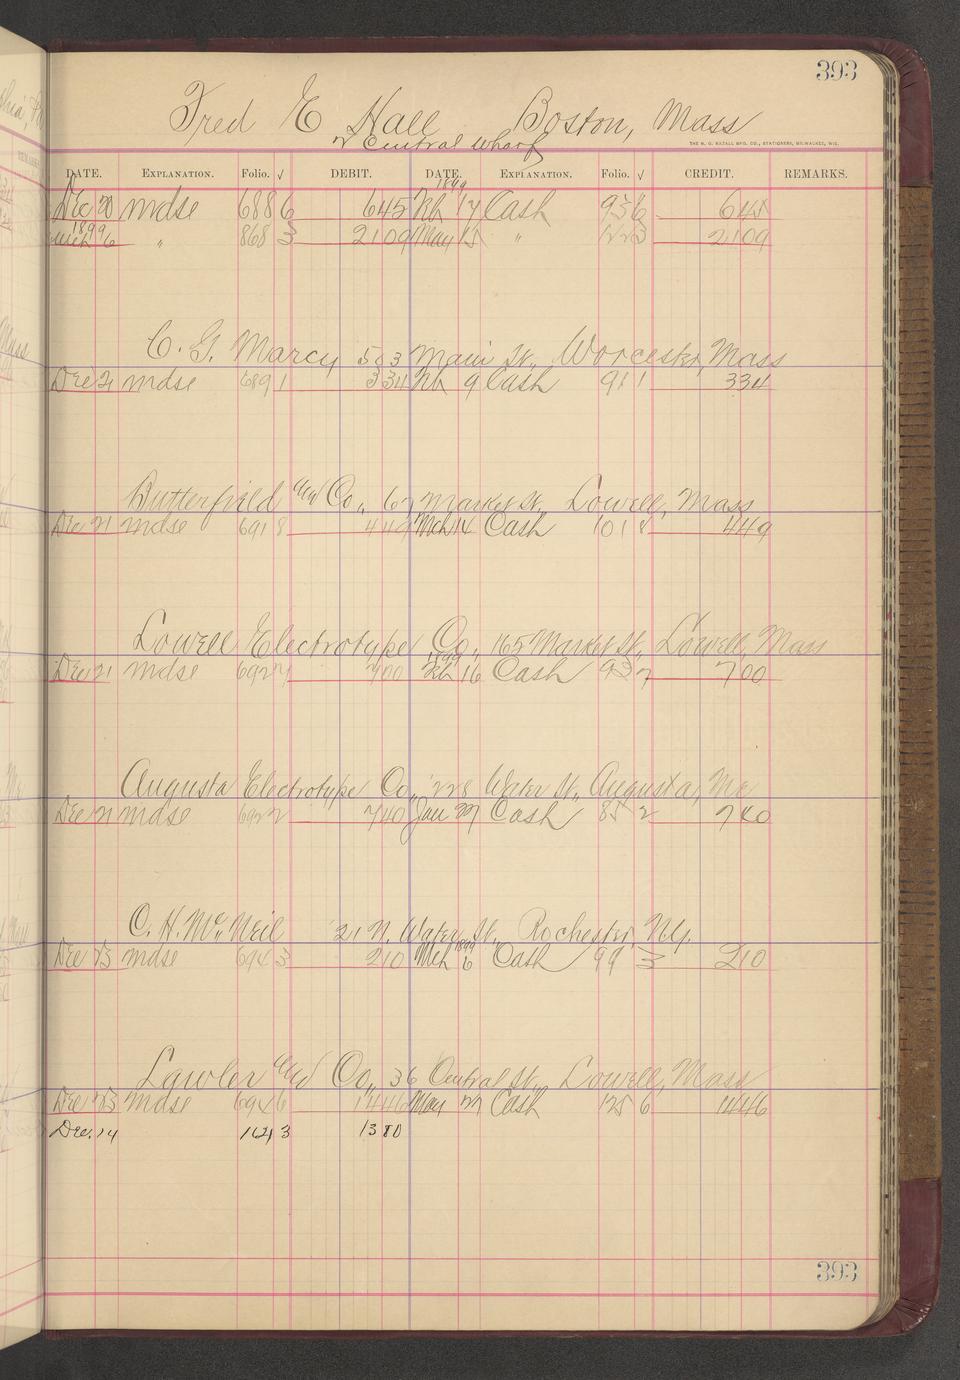 393
Fred E Hall Boston, Mass
Central Wharf
THE H. G. RAZALL MFG. CO., STATIONERS, MILWAUKEE, WIS.
DATE. EXPLANATION. Folio. √ DEBIT. DATE. EXPLANATION. Folio. √ CREDIT. REMARKS.
1899
Dec 20 mdse 688 6 645 Feb 17 Cash 93 6 645
1899
Mch 6 " 868 3 2109 May 15 " 2109
C. G. Marcy 503 Main St., Worcester, Mass
Dec 21 mdse 689 1 334 Feb 9 Cash 91 1 334
Butterfield and Co., 67 Market St., Lowell, Mass
Dec 21 mdse 691 8 449 Mch 14 Cash 101 8 449
Lowell Electrotype Co., 165 Market St., Lowell, Mass
1899
Dec 21 mdse 692 7 700 Feb 16 Cash 93 7 700
Augusta Electrotype Co., 228 Water St., Augusta, Me
Dec 21 mdse 692 2 740 Jan 27 Cash 85 2 740
C. H. McNeil 21 N. Water St., Rochester, N.Y.
1899
Dec 23 mdse 694 3 210 Mch 6 Cash 99 3 210
Lawler and Co., 36 Central St., Lowell, Mass
Dec 23 mdse 694 6 1446 May 27 Cash 125 6 1446
Dec. 14 164 3 1380
393